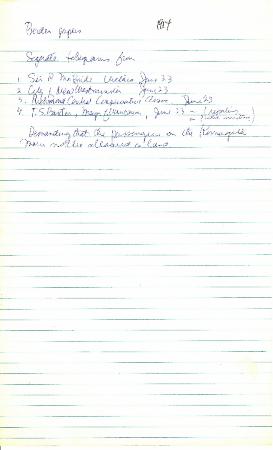 Borden papers 1914
Separate telegrams from
1. Sir R McBride Victoria June 23
2. City of New Westminster June 23
3. Central Conservative Assoc. June 23
4. T.S. Baxter, Mayor of Vancouver, June 23 -
Demanding that the passengers on the Komagata
Maru not be allowed to land